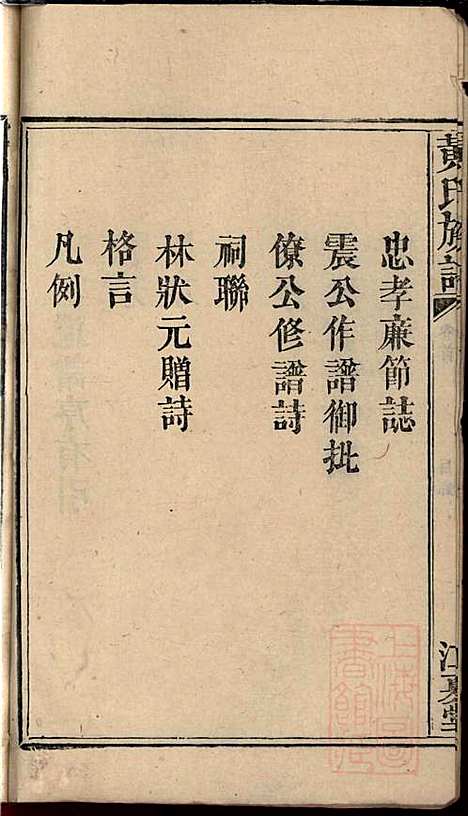 黃氏族譜
忠孝廉節誌
震公作譜御批
僚公修譜詩
祠聯
林狀元贈詩
格言
凡例
江夏堂
上海圖書館藏